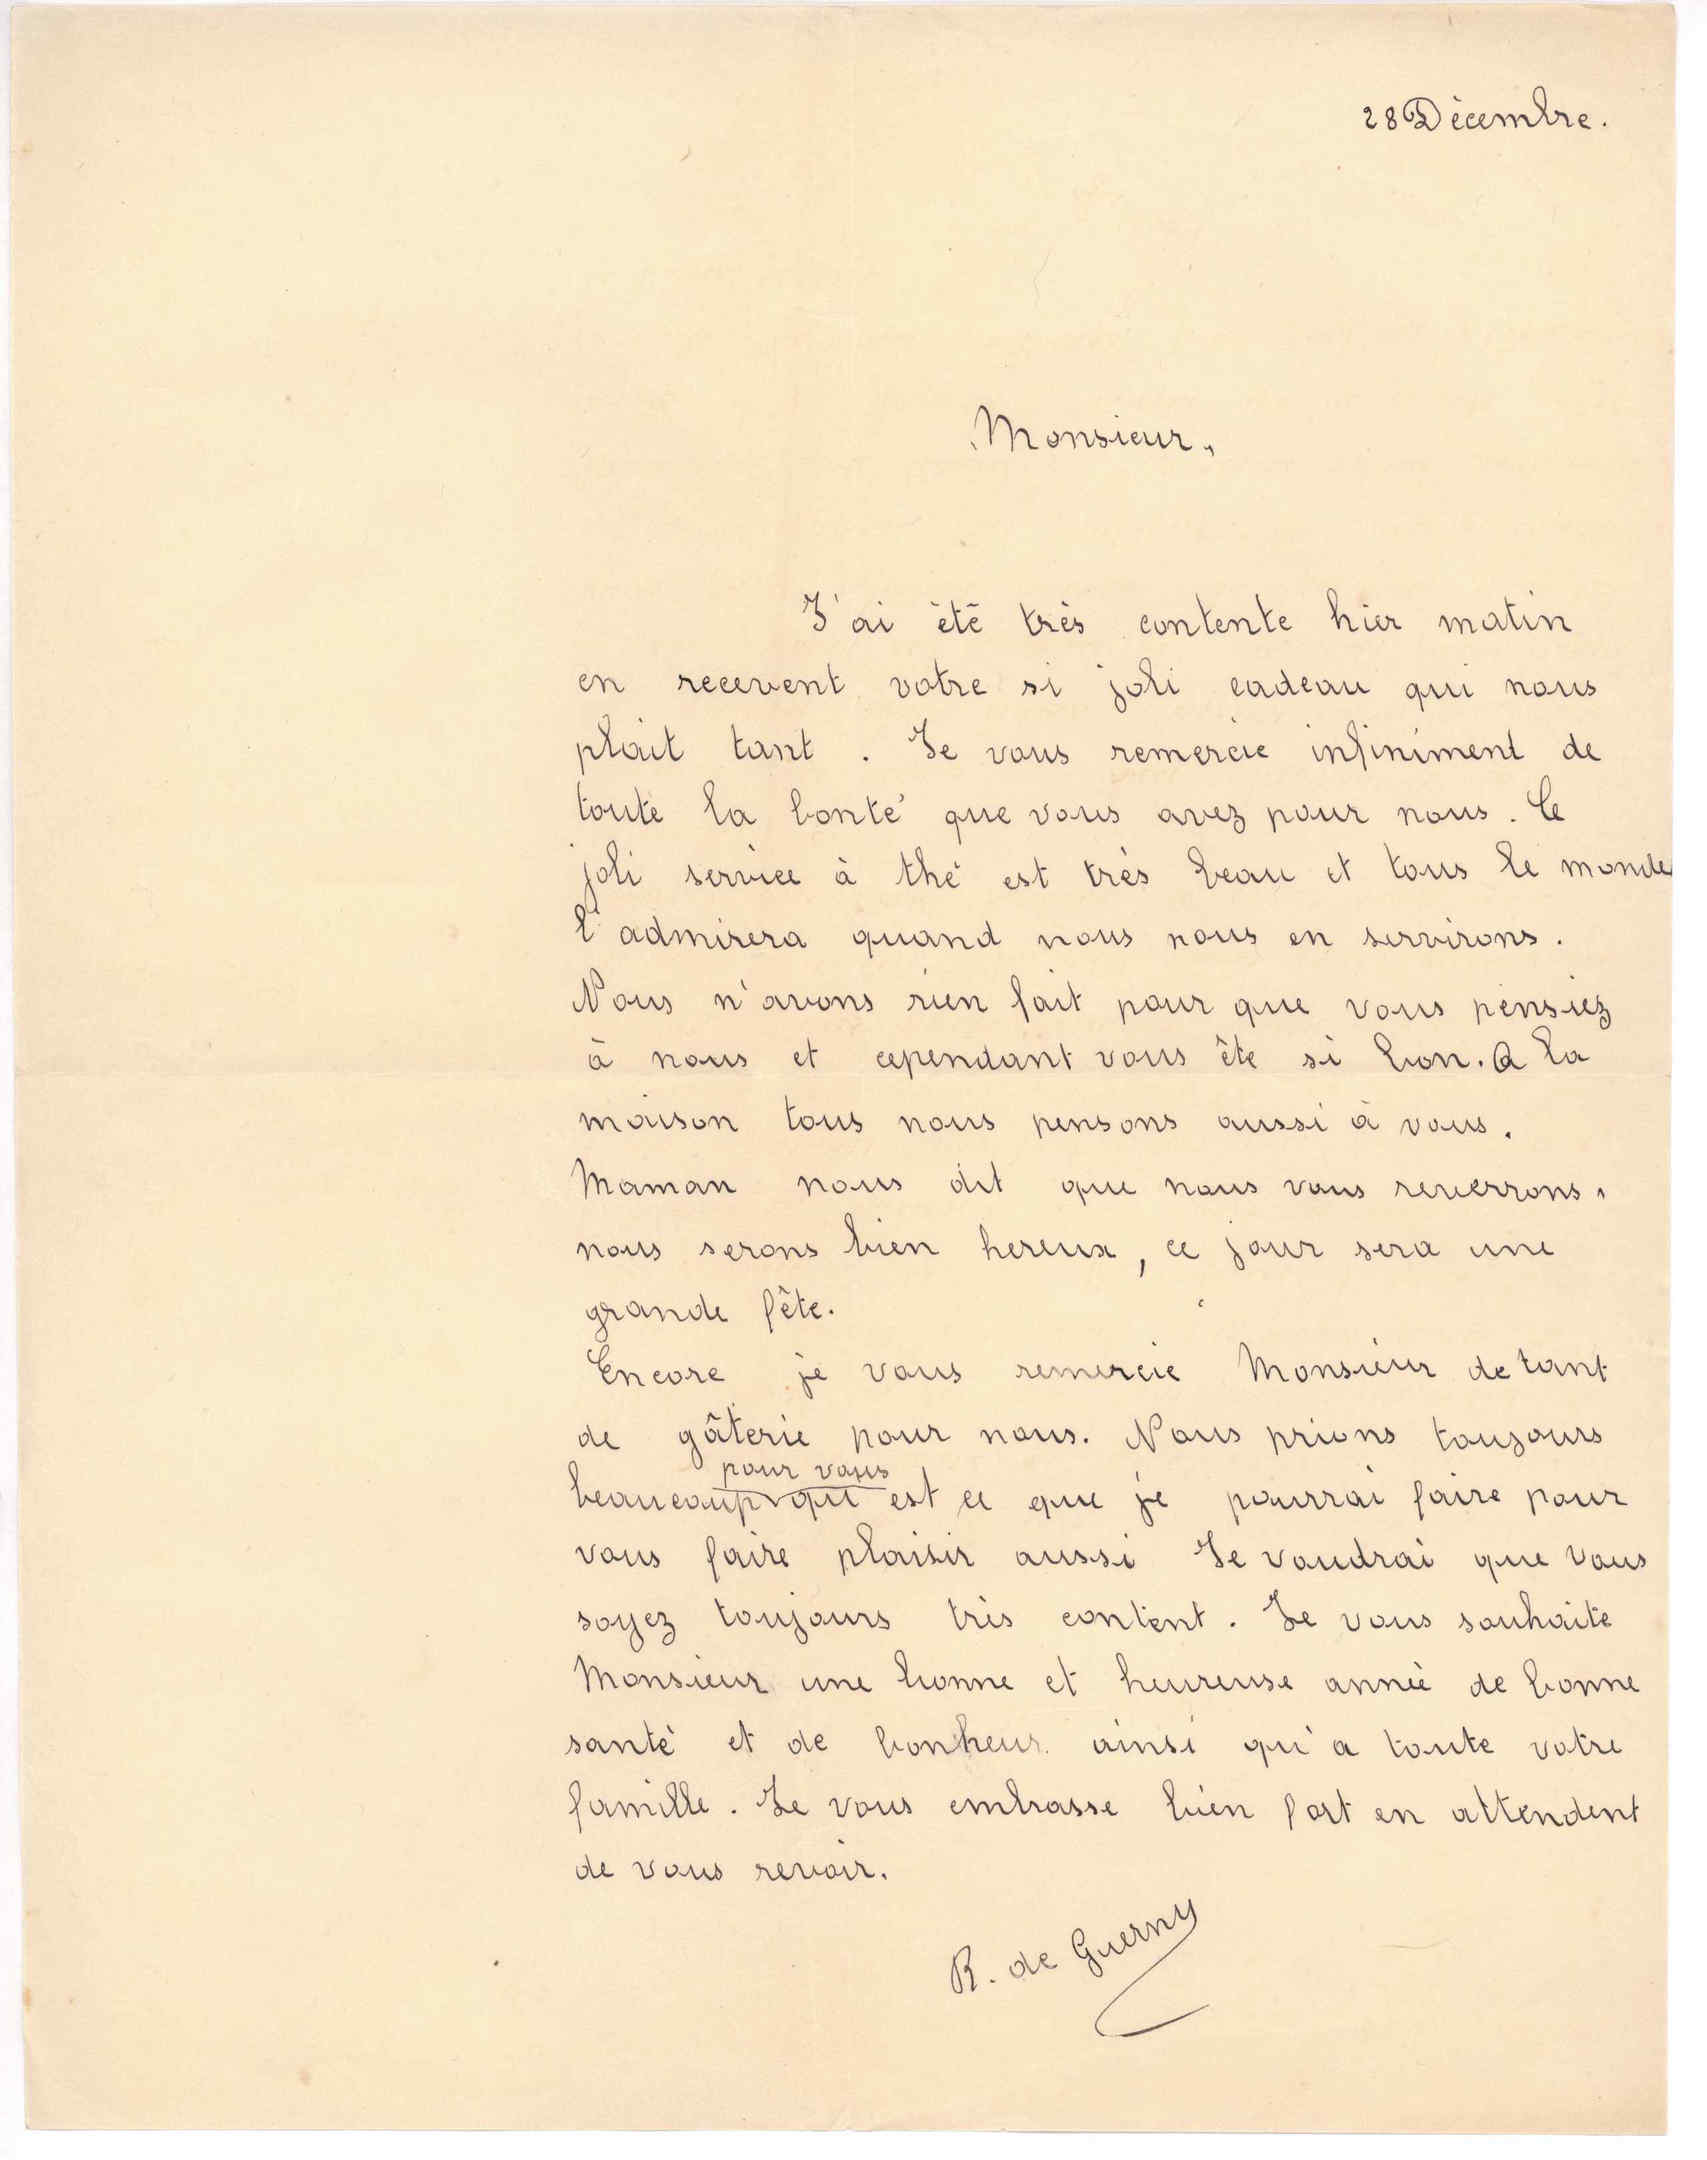 28 Décembre.
Monsieur,
J'ai été très contente hier matin
en recevent votre si joli cadeau qui nous
plait tant . Je vous remercie infiniment de
toute la bonté que vous avez pour nous. Ce
joli service à thé est très beau et tous le monde
l'admirera quand nous nous en servirons.
Nous n'avons rien fait pour que vous pensiez
à nous et cependant vous ête si bon. A la
maison tous nous pensons aussi à vous.
Maman nous dit que nous vous reverrons,
nous serons bien hereux, ce jour sera une
grande fête.
Encore je vous remercie Monsieur de tant
de gâterie pour nous. Nous prions toujours
pour vous
beaucoup qu'est ce que je pourrai faire pour
vous faire plaisir aussi Je voudrai que vous
soyez toujours très content. Je vous souhaite
Monsieur une bonne et heureuse année de bonne
santé et de bonheur ainsi qu'a toute votre
famille. Je vous embrasse bien fort en attendent
de vous revoir.
R. de Guerny